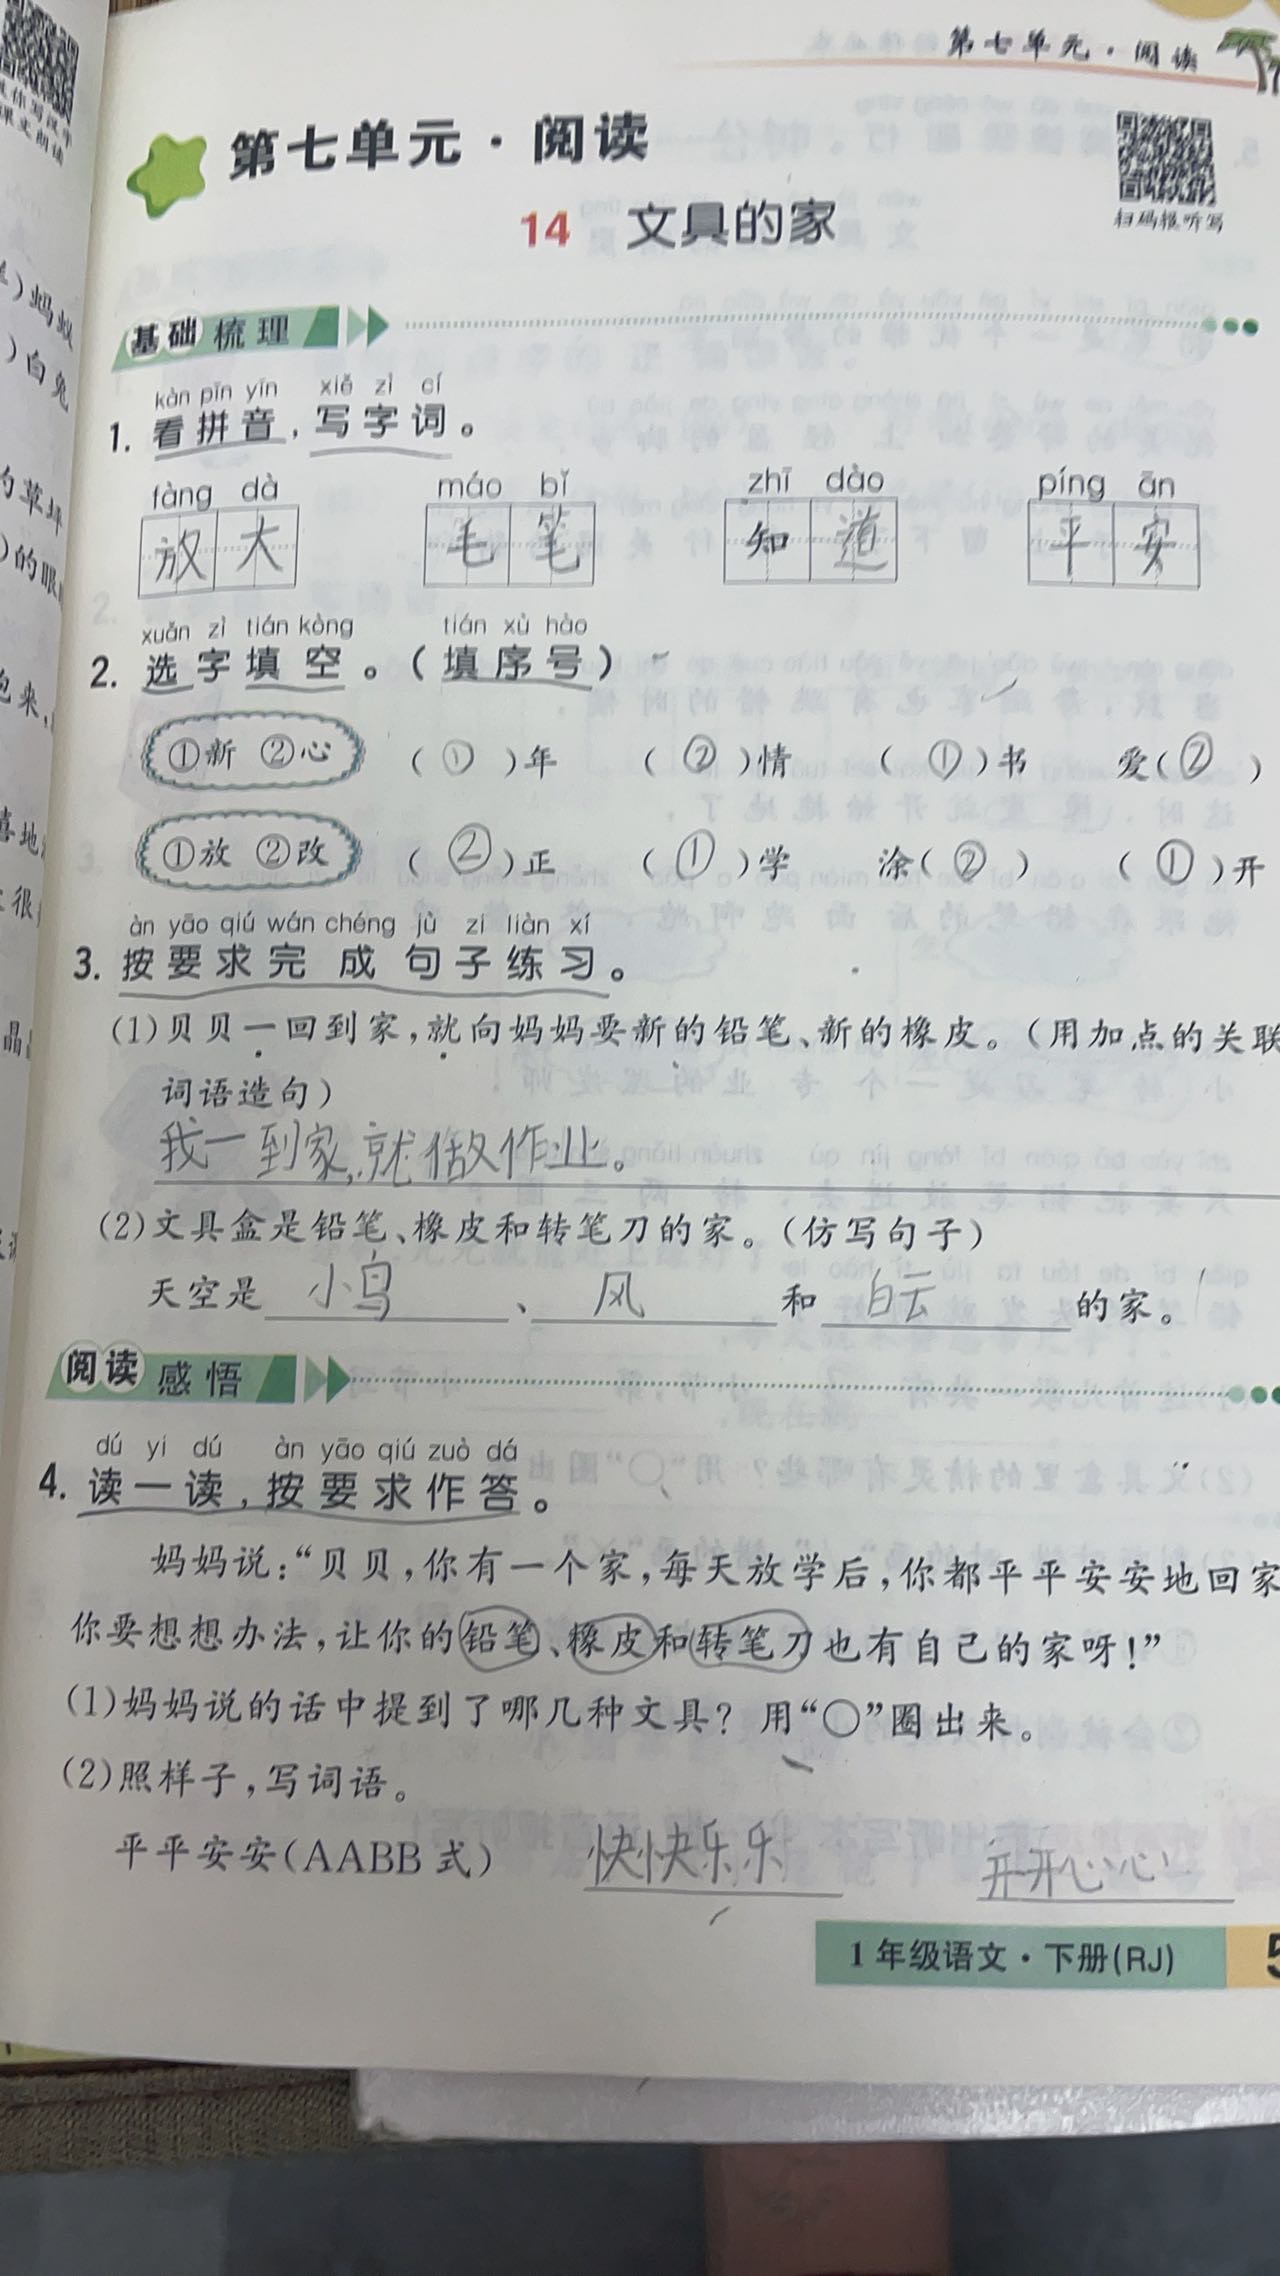 第七单元·阅读
第七单元·阅读
扫码报听写
14 文具的家
基础梳理
kàn pīn yīn xiě zì cí
1. 看拼音,写字词。
fàng dà máo bǐ zhī dào píng ān
放大 毛笔 知道 平安
xuǎn zì tián kòng tián xù hào
2. 选字填空。(填序号)
①新 ②心 (①)年 (②)情 (①)书 爱(②)
①放 ②改 (②)正 (①)学 涂(②) (①)开
àn yāo qiú wán chéng jù zi liàn xí
3. 按要求完成句子练习。
(1)贝贝一回到家,就向妈妈要新的铅笔、新的橡皮。(用加点的关联
词语造句)
我一到家,就做作业。
(2)文具盒是铅笔、橡皮和转笔刀的家。(仿写句子)
天空是 小鸟 、 风 和 白云 的家。
阅读感悟
dú yi dú àn yāo qiú zuò dá
4. 读一读,按要求作答。
妈妈说:“贝贝,你有一个家,每天放学后,你都平平安安地回家
你要想想办法,让你的铅笔、橡皮和转笔刀也有自己的家呀!”
(1)妈妈说的话中提到了哪几种文具?用“○”圈出来。
(2)照样子,写词语。
平平安安(AABB式) 快快乐乐 开开心心
1年级语文·下册(RJ)